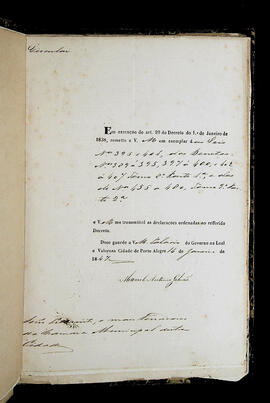 Circular
Em execução do art. 20 do Decreto do 1.º de Janeiro de
1838, remetto a V. M. em exemplar as Leis
Nos 395 a 401, dos Decretos
Nos 309 a 395, 397 a 400, 402
a 407 Tomo 8º Parte 1ª, e das
de Nos 455 a 480, Tomo 9º Par
te 2ª
e V. M. me transmittirá as declarações ordenadas no referido
Decreto.
Deos guarde a V. M. Palacio do Governo na Leal
e Valorosa Cidade de Porto Alegre 16 de Janeiro de
1847.
Manoel Antonio Galvão
da Camara Municipal desta
Cidade